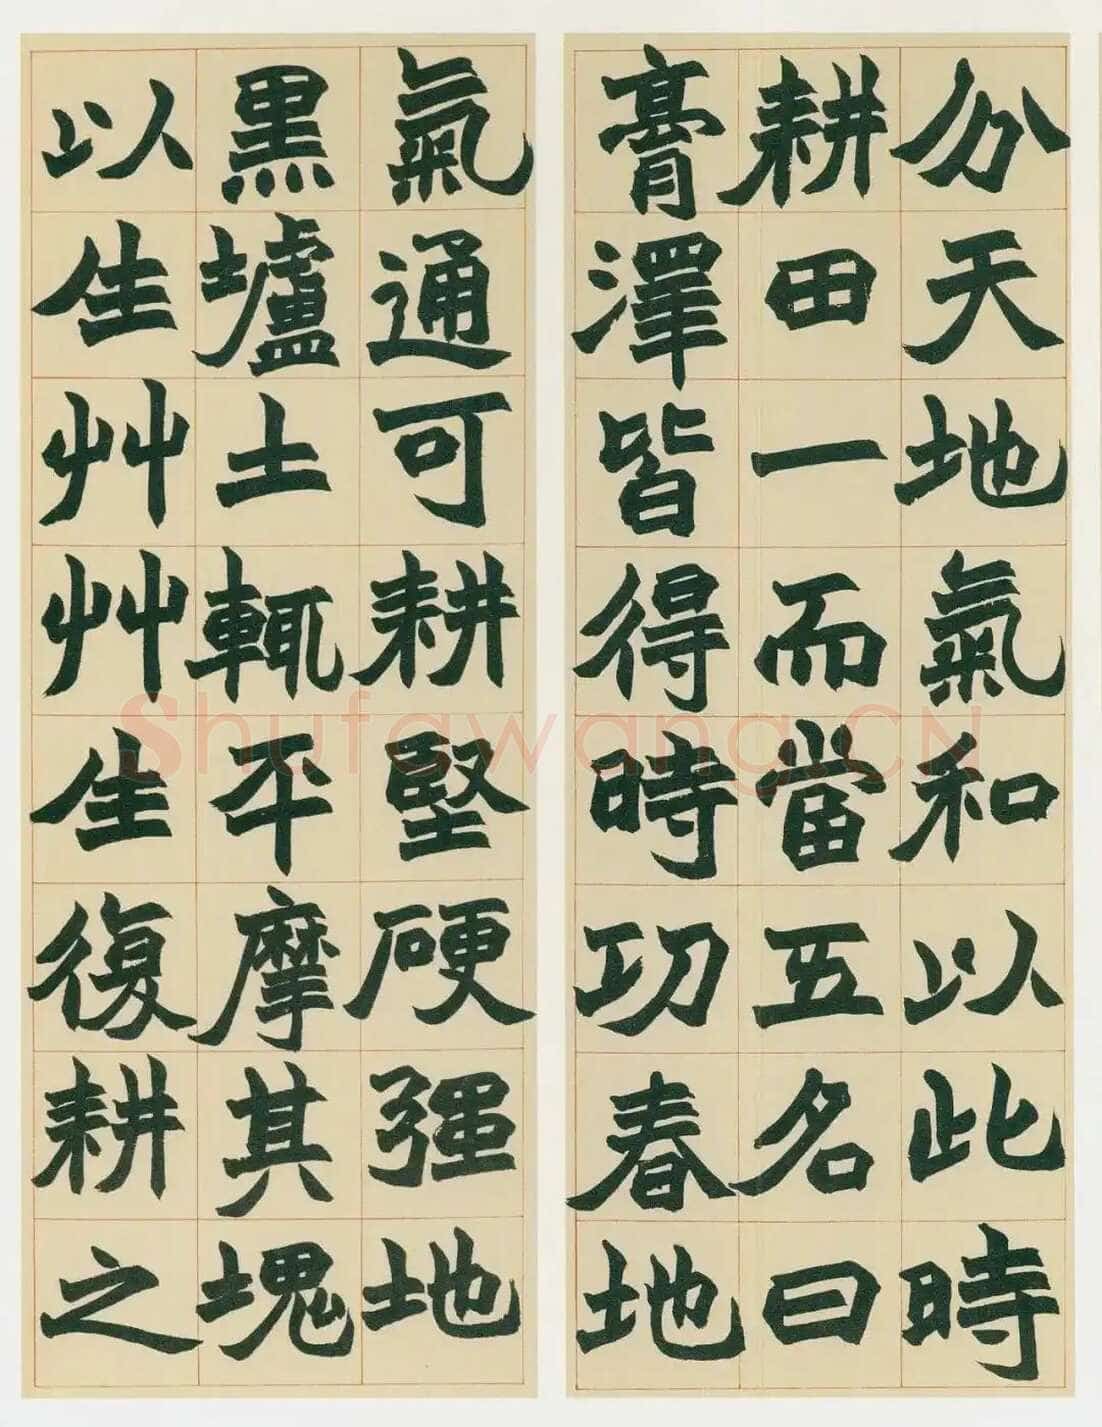 分天地氣和以此時
耕田一而當五名曰
膏澤皆得時功春地
氣通可耕堅硬强地
黑壚土輒平摩其塊
以生艸艸生復耕之
Shufawang.CN